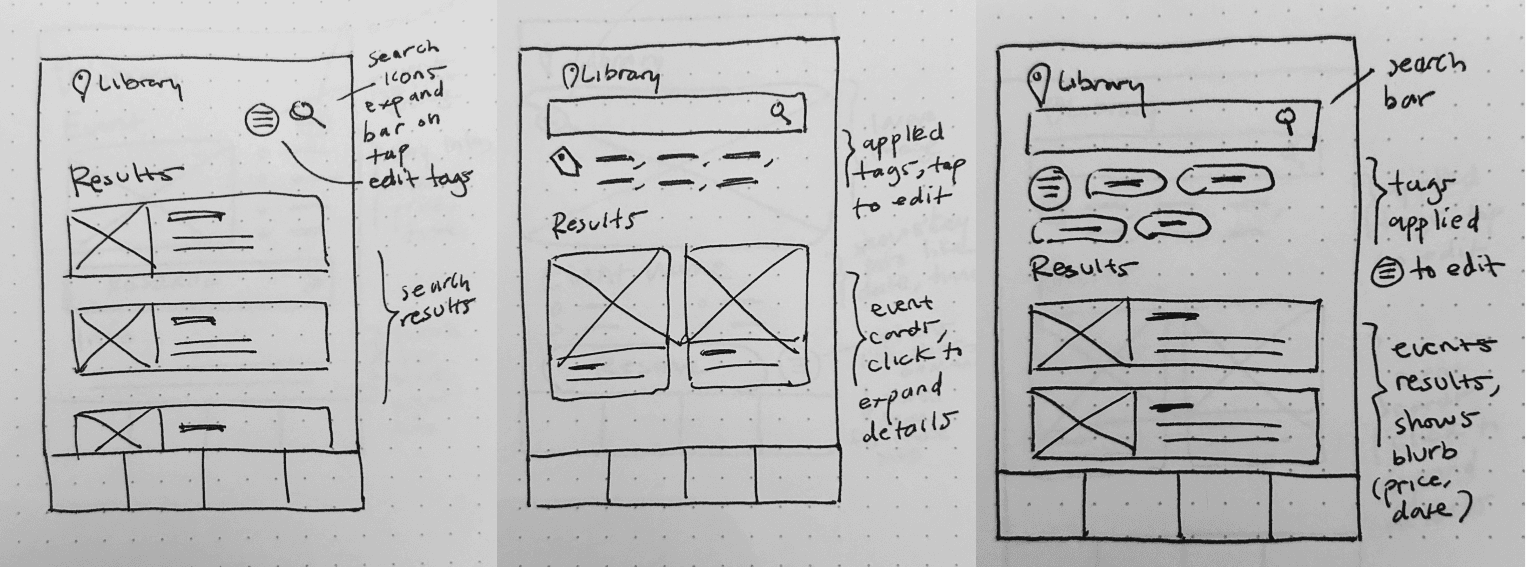 Library
search
icons
expand
bar on
tap
edit tags
Results
search
results
Library
applied
tags, tap
to edit
Results
event
cards,
click to
expand
details
Library
search
bar
tags
applied
to edit
Results
events
results,
shows
blurb
(price,
date)